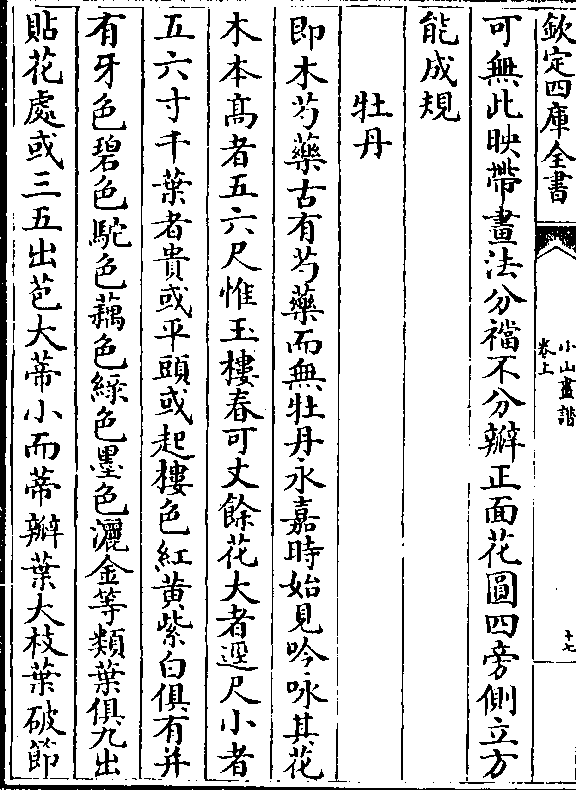 欽定四庫全書
小山畫譜
卷上
十七
可無此映帶畫法分襠不分瓣正面花圓四旁側立方
能成規
牡丹
即木芍藥古有芍藥而無牡丹永嘉時始見吟咏其花
木本髙者五六尺惟玉樓春可丈餘花大者逕尺小者
五六寸千葉者貴或平頭或起樓色紅黄紫白俱有并
有牙色碧色駝色藕色綠色墨色灑金等類葉俱九出
貼花處或三五出苞大蒂小而蒂瓣葉大枝葉破節